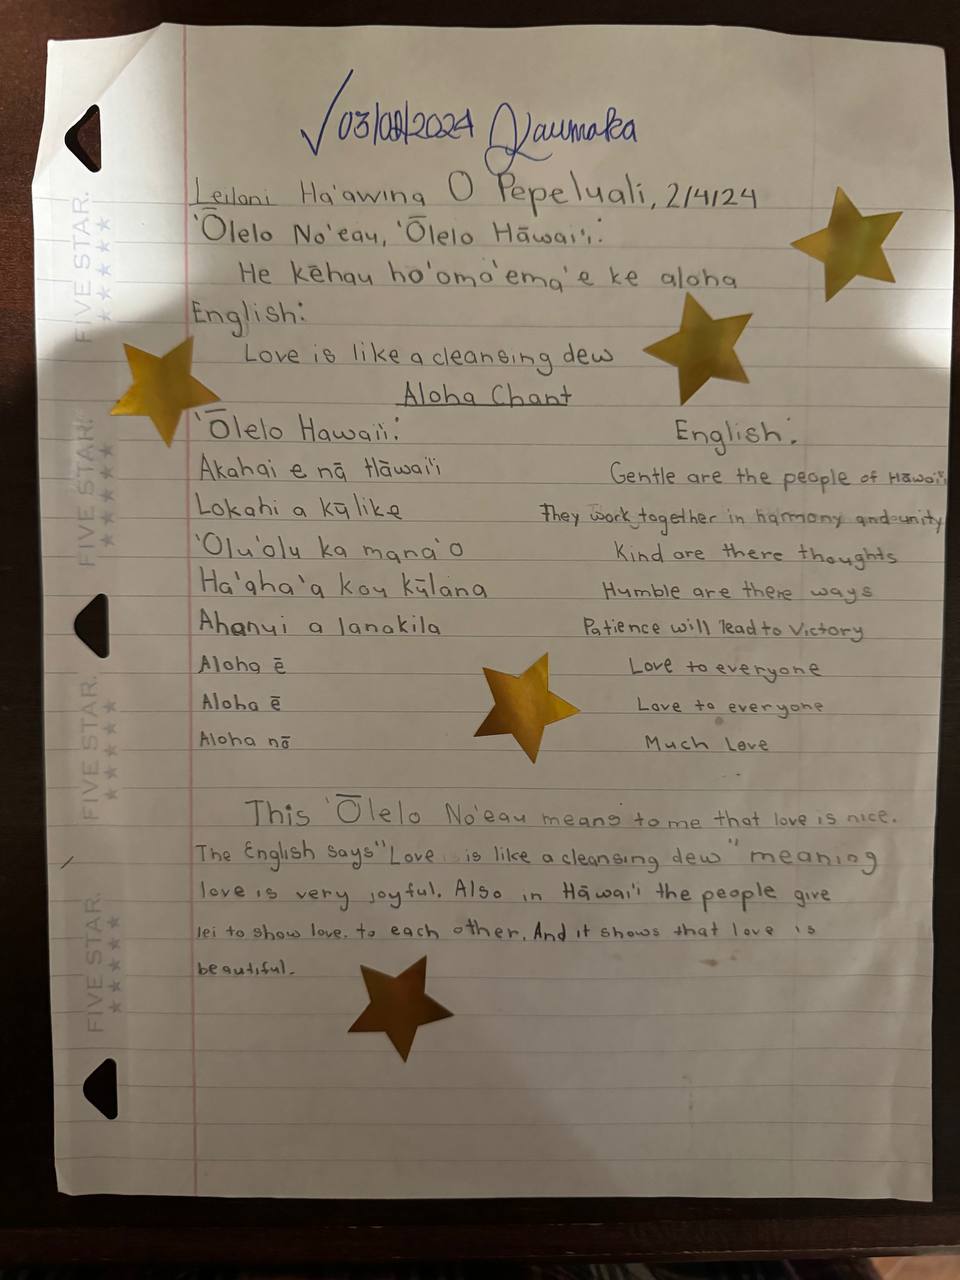 √03/08/2024 Kaumaka
Leilani Ha'awina O Pepeluali, 2/4/24
'Ōlelo No'eau, 'Ōlelo Hāwai'i:
He kēhau ho'oma'ema'e ke aloha
English:
Love is like a cleansing dew
Aloha Chant
'Ōlelo Hawai'i: English:
Akahai e nā Hāwai'i Gentle are the people of Hāwai'i
Lokahi a kūlike They work together in harmony and unity
'Olu'olu ka mana'o Kind are there thoughts
Ha'aha'a kou kūlana Humble are there ways
Ahanui a lanakila Patience will lead to Victory
Aloha ē Love to everyone
Aloha ē Love to everyone
Aloha nō Much Love
This 'Ōlelo No'eau means to me that love is nice.
The English says "Love is like a cleansing dew" meaning
love is very joyful. Also in Hāwai'i the people give
lei to show love. to each other. And it shows that love is
beautiful.
FIVE STAR.
FIVE STAR.
FIVE STAR.
FIVE STAR.